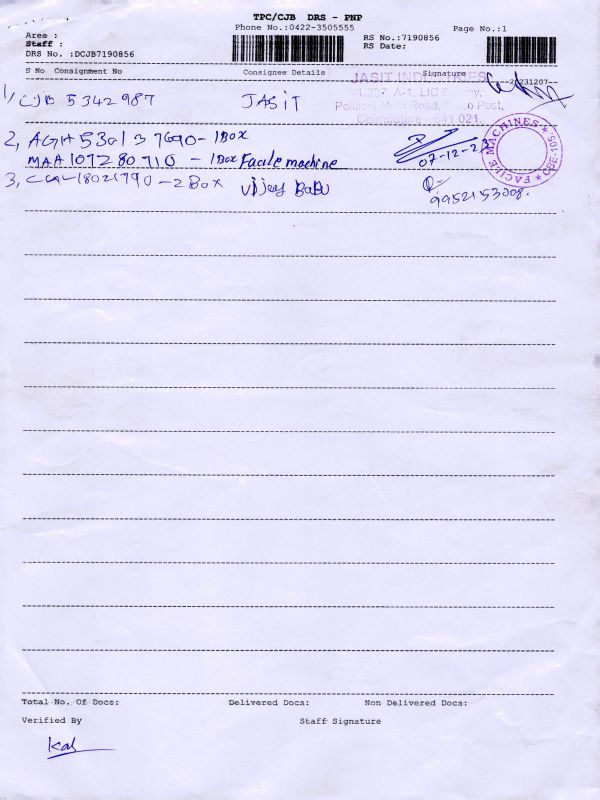 TPC/CJB DRS - PNP
Phone No.:0422-3505555
Page No.:1
Area :
RS No.:7190856
Staff :
RS Date:
DRS No. :DCJB7190856
--20231207--
S No Consignment No Consignee Details Signature
JASIT INDUSTRIES
1, CJB 5342987 JASIT
1/237, A-1, LIC Colony,
Pollachi Main Road, Post,
Coimbatore - 641 021.
2, AGH 530137690 - 1 Box
MAA 107280710 - 1 Box Facile machine
07-12-23
FACILE MACHINES ★ CBE-105. ★
3, 18021790 - 2 Box Vijay Babu
9952153008.
Total No. Of Docs: Delivered Docs: Non Delivered Docs:
Verified By Staff Signature